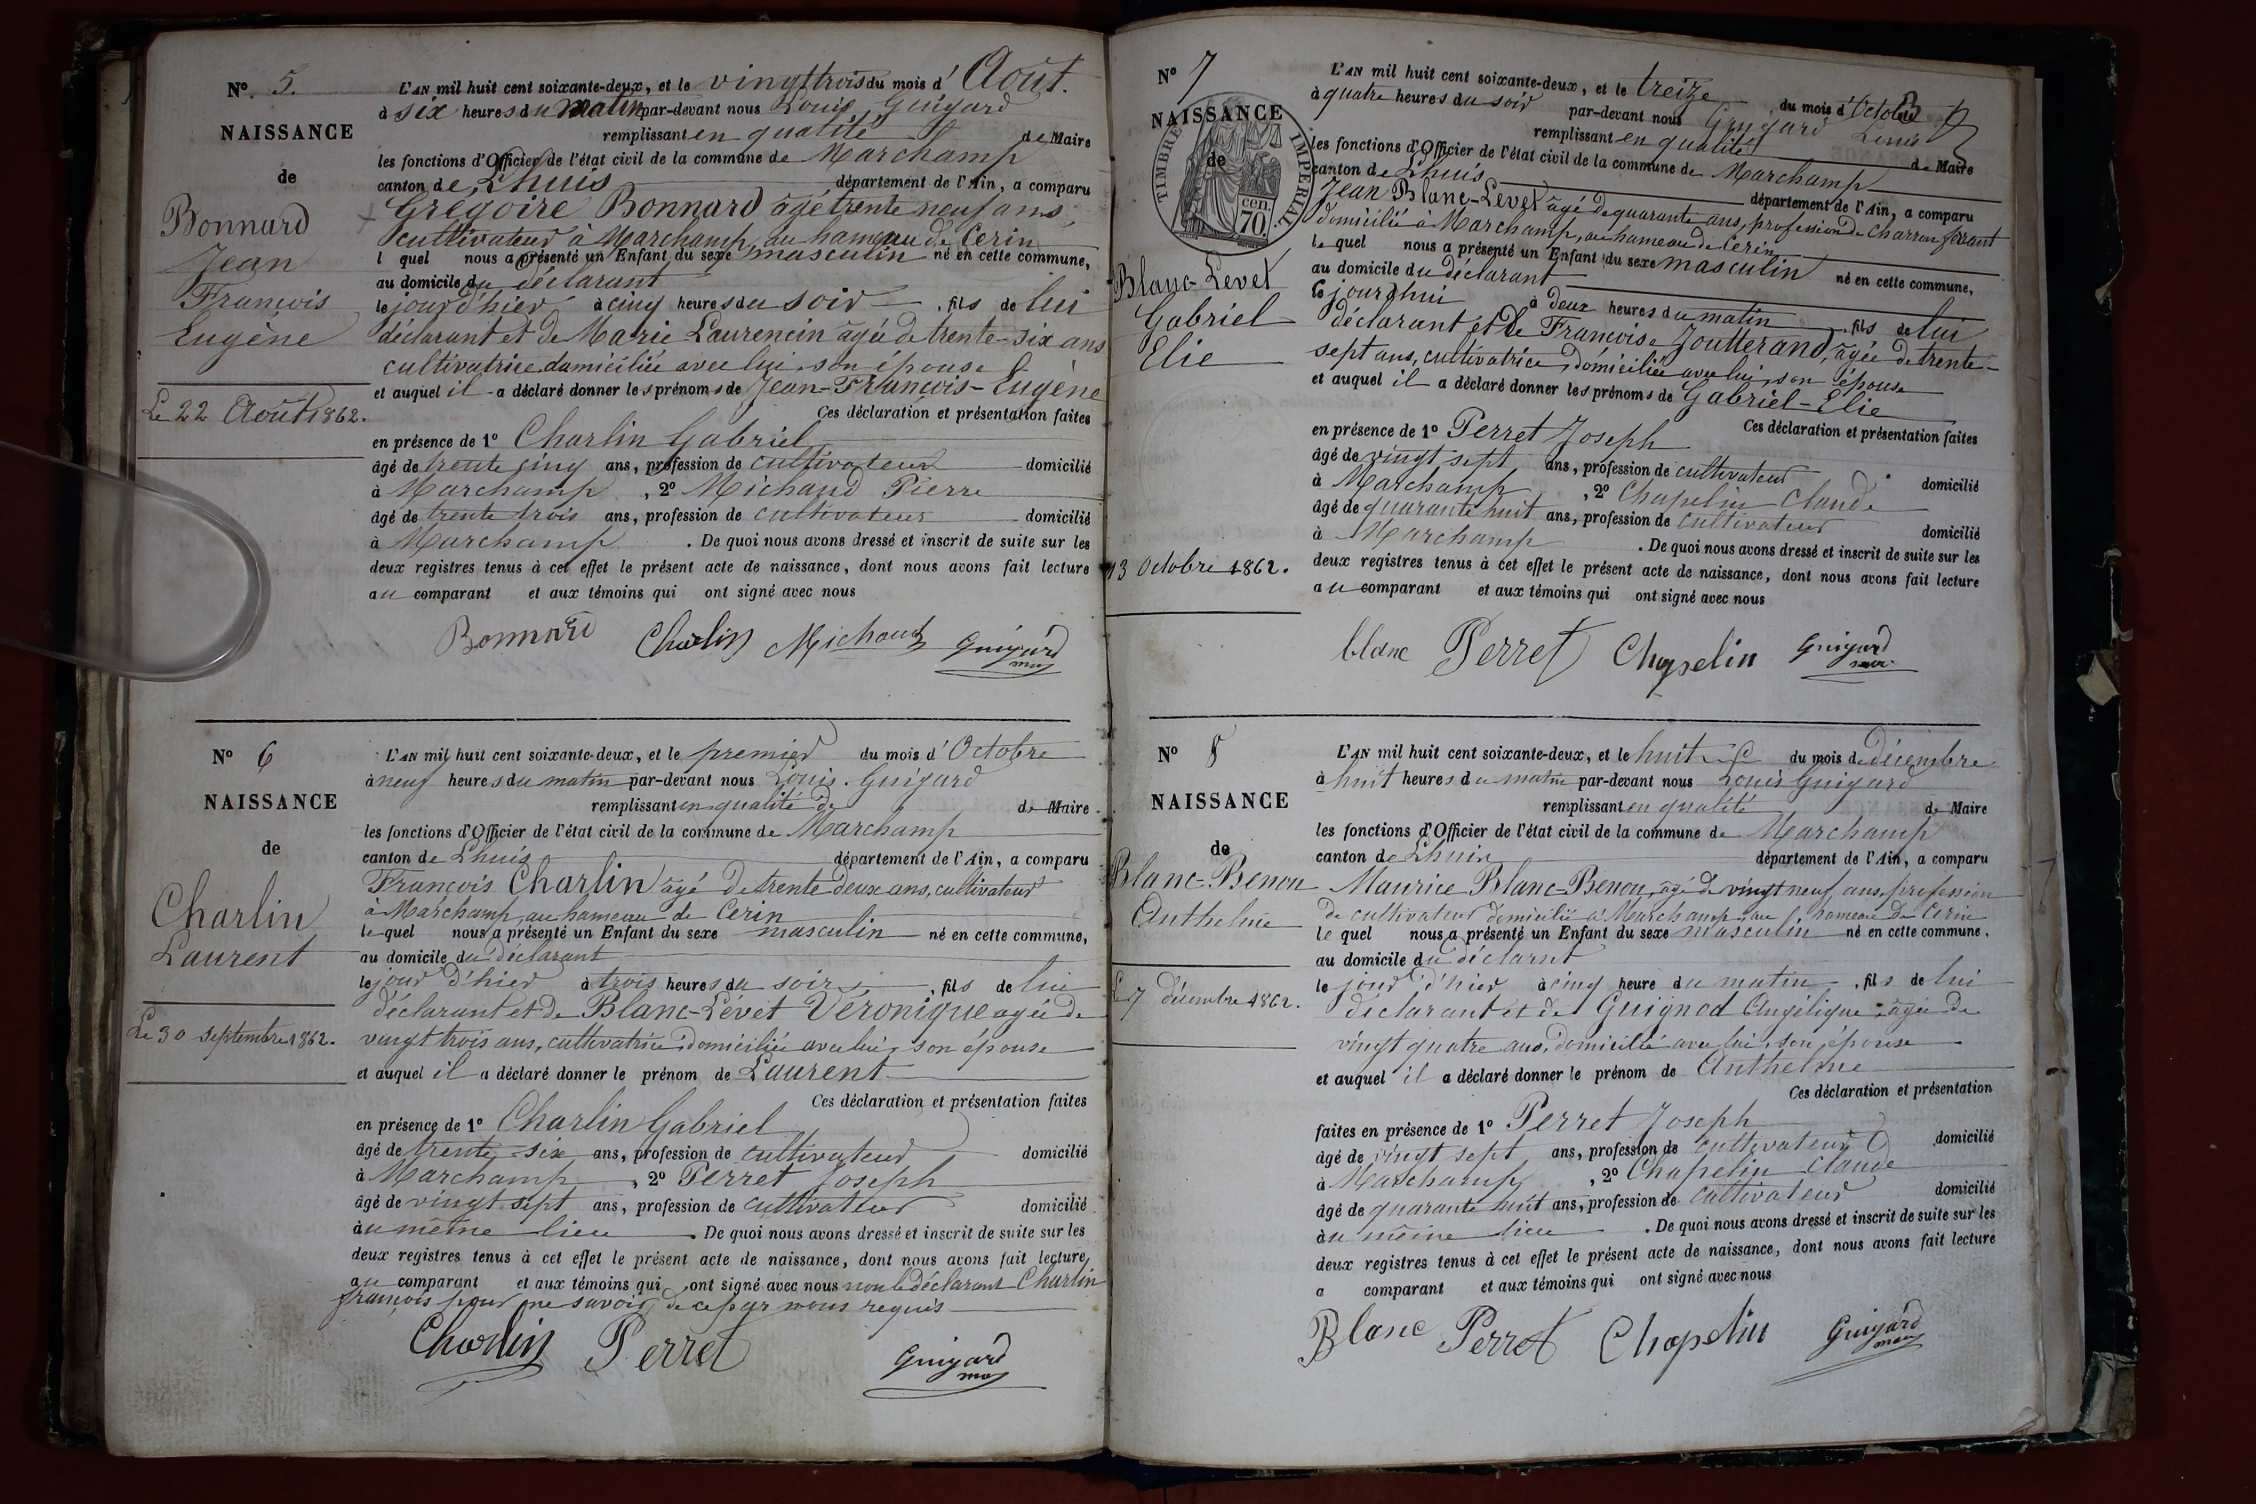 N° 5.
NAISSANCE
de
Bonnard
Jean
François
Eugène
Le 22 Août 1862.
L'AN mil huit cent soixante-deux, et le vingt trois du mois d'Août.
à six heures du matin par-devant nous Louis Guigard
remplissant en qualité de Maire
les fonctions d'Officier de l'état civil de la commune de Marchamp
canton de Lhuis département de l'Ain, a comparu
Grégoire Bonnard âgé trente neuf ans
cultivateur à Marchamp, au hameau de Cerin
l quel nous a présenté un Enfant du sexe masculin né en cette commune,
au domicile du déclarant
le jour d'hier à cinq heures du soir, fils de lui
déclarant et de Marie Laurencin âgée de trente-six ans
cultivatrice domiciliée avec lui, son épouse
et auquel il a déclaré donner les prénoms de Jean-François-Eugène
Ces déclaration et présentation faites
en présence de 1° Charlin Gabriel
âgé de trente cinq ans, profession de cultivateur domicilié
à Marchamp, 2° Michaud Pierre
âgé de trente trois ans, profession de cultivateur domicilié
à Marchamp. De quoi nous avons dressé et inscrit de suite sur les
deux registres tenus à cet effet le présent acte de naissance, dont nous avons fait lecture
au comparant et aux témoins qui ont signé avec nous
Bonnard Charlin Michaud Guigard
N° 6
NAISSANCE
de
Charlin
Laurent
Le 30 septembre 1862.
L'AN mil huit cent soixante-deux, et le premier du mois d'Octobre
à neuf heures du matin par-devant nous Louis Guigard
remplissant en qualité de de Maire
les fonctions d'Officier de l'état civil de la commune de Marchamp
canton de Lhuis département de l'Ain, a comparu
François Charlin âgé de trente-deux ans, cultivateur
à Marchamp, au hameau de Cerin
le quel nous a présenté un Enfant du sexe masculin né en cette commune,
au domicile du déclarant
le jour d'hier à trois heures du soir, fils de lui
déclarant et de Blanc-Lévet Véronique agée de
vingt trois ans, cultivatrice, domiciliée avec lui, son épouse
et auquel il a déclaré donner le prénom de Laurent
Ces déclaration et présentation faites
en présence de 1° Charlin Gabriel
âgé de trente-six ans, profession de cultivateur domicilié
à Marchamp, 2° Perret Joseph
âgé de vingt sept ans, profession de cultivateur domicilié
au même lieu. De quoi nous avons dressé et inscrit de suite sur les
deux registres tenus à cet effet le présent acte de naissance, dont nous avons fait lecture,
au comparant et aux témoins qui ont signé avec nous non le déclarant Charlin
françois pour ne savoir, de ce par nous requis
Charlin Perret Guigard
N° 7
NAISSANCE
de
TIMBRE IMPERIAL
70 cen.
Blanc-Levet
Gabriel
Elie
13 Octobre 1862.
L'AN mil huit cent soixante-deux, et le treize du mois d'Octobre
à quatre heures du soir par-devant nous Guigard Louis
remplissant en qualité de Maire
les fonctions d'Officier de l'état civil de la commune de Marchamp
canton de Lhuis département de l'Ain, a comparu
Jean Blanc-Levet âgé de quarante ans, profession de charron
domicilié à Marchamp, au hameau de Cerin
le quel nous a présenté un Enfant du sexe masculin né en cette commune,
au domicile du déclarant
ce jourd'hui à deux heures du matin fils de lui
déclarant et de Francoise Joutterand, âgée de trente-
sept ans, cultivatrice, domiciliée avec lui, son épouse
et auquel il a déclaré donner les prénoms de Gabriel-Elie
Ces déclaration et présentation faites
en présence de 1° Perret Joseph
âgé de vingt sept ans, profession de cultivateur domicilié
à Marchamp, 2° Chapelin Claude
âgé de quarante huit ans, profession de cultivateur domicilié
à Marchamp. De quoi nous avons dressé et inscrit de suite sur les
deux registres tenus à cet effet le présent acte de naissance, dont nous avons fait lecture
au comparant et aux témoins qui ont signé avec nous
blanc Perret Chapelin Guigard
N° 8
NAISSANCE
de
Blanc-Benon
Anthelme
Le 7 décembre 1862.
L'AN mil huit cent soixante-deux, et le huit du mois de décembre
à huit heures du matin par-devant nous Louis Guigard
remplissant en qualité de Maire
les fonctions d'Officier de l'état civil de la commune de Marchamp
canton de Lhuis département de l'Ain, a comparu
Maurice Blanc-Benon, âgé de vingt neuf ans, profession
de cultivateur domicilié à Marchamp, au hameau de Cerin
le quel nous a présenté un Enfant du sexe masculin né en cette commune,
au domicile du déclarnt
le jour d'hier à cinq heure du matin, fils de lui
déclarant et de Guignod Angélique âgée de
vingt quatre ans, domiciliée avec lui, son épouse
et auquel il a déclaré donner le prénom de Anthelme
Ces déclaration et présentation
faites en présence de 1° Perret Joseph
âgé de vingt sept ans, profession de cultivateur domicilié
à Marchamp, 2° Chapelin Claude
âgé de quarante huit ans, profession de cultivateur domicilié
au même lieu. De quoi nous avons dressé et inscrit de suite sur les
deux registres tenus à cet effet le présent acte de naissance, dont nous avons fait lecture
a comparant et aux témoins qui ont signé avec nous
Blanc Perret Chapelin Guigard